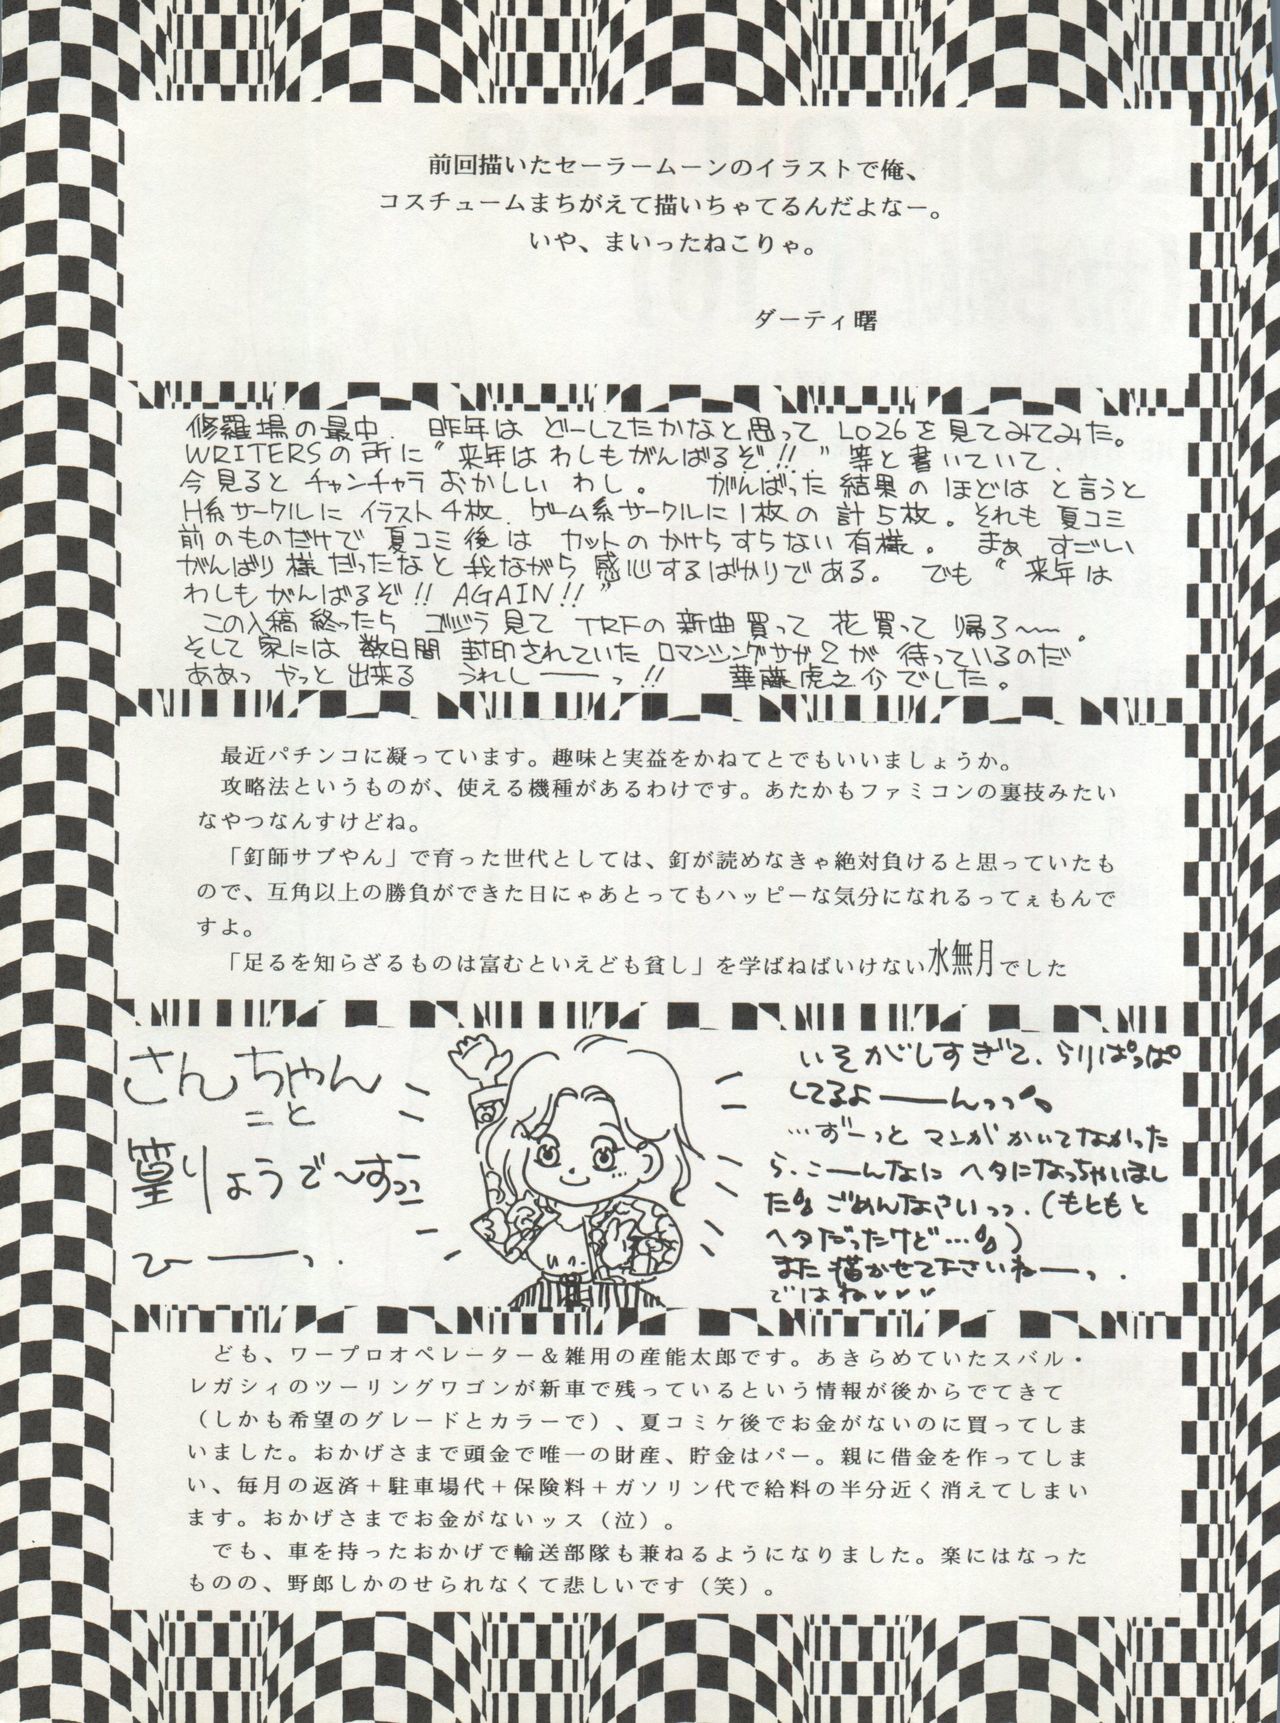 前回描いたセーラームーンのイラストで俺、
コスチュームまちがえて描いちゃてるんだよなー。
いや、まいったねこりゃ。
ダーティ曙
修羅場の最中、昨年は どーしてたかなと思って LO26を見てみてみた。
WRITERSの所に〝来年は わしもがんばるぞ!!〟等と書いていて、
今見ると チャンチャラ おかしい わし。 がんばった 結果の ほどは と言うと
H系サークルに イラスト4枚、ゲーム系サークルに1枚の 計5枚。それも 夏コミ
前のものだけで 夏コミ後は カットの かけらすらない有様。 まぁ すごい
がんばり様だったなと我ながら 感心するばかりである。 でも〝来年は
わしもがんばるぞ!! AGAIN!!〟
この入稿 終ったら ゴジラ見て TRFの 新曲買って 花買って 帰ろ〜〜。
そして 家には 数日間 封印されていた ロマンシングサガ2が 待っているのだ
ああっ やっと 出来る うれしーーっ!! 華藤虎之介でした。
最近パチンコに凝っています。趣味と実益をかねてとでもいいましょうか。
攻略法というものが、使える機種があるわけです。あたかもファミコンの裏技みたい
なやつなんすけどね。
「釘師サブやん」で育った世代としては、釘が読めなきゃ絶対負けると思っていたも
ので、互角以上の勝負ができた日にゃあとってもハッピーな気分になれるってぇもんで
すよ。
「足るを知らざるものは富むといえども貧し」を学ばねばいけない水無月でした
さんちゃん
こと
りょうで〜すっっ
ひーーっ.
いそがしすぎて、らりぱっぱ
してるよーーんっっ
…ずーっと マンが かいてなかった
ら、こーんなに ヘタになっちゃいまし
た ごめんなさいっっ.(もともと
ヘタだったけど…)
また 描かせて下さいねーっ.
ではね♥♥♥
ども、ワープロオペレーター＆雑用の産能太郎です。あきらめていたスバル・
レガシィのツーリングワゴンが新車で残っているという情報が後からでてきて
（しかも希望のグレードとカラーで）、夏コミケ後でお金がないのに買ってしま
いました。おかげさまで頭金で唯一の財産、貯金はパー。親に借金を作ってしま
い、毎月の返済＋駐車場代＋保険料＋ガソリン代で給料の半分近く消えてしまい
ます。おかげさまでお金がないッス（泣）。
でも、車を持ったおかげで輸送部隊も兼ねるようになりました。楽にはなった
ものの、野郎しかのせられなくて悲しいです（笑）。